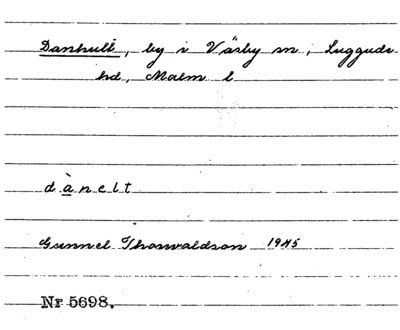 Danhult, by i Väsby sn, Luggude
hd, Malm l
dànelt
Gunnel Thorwaldson 1945
Nr 5698.